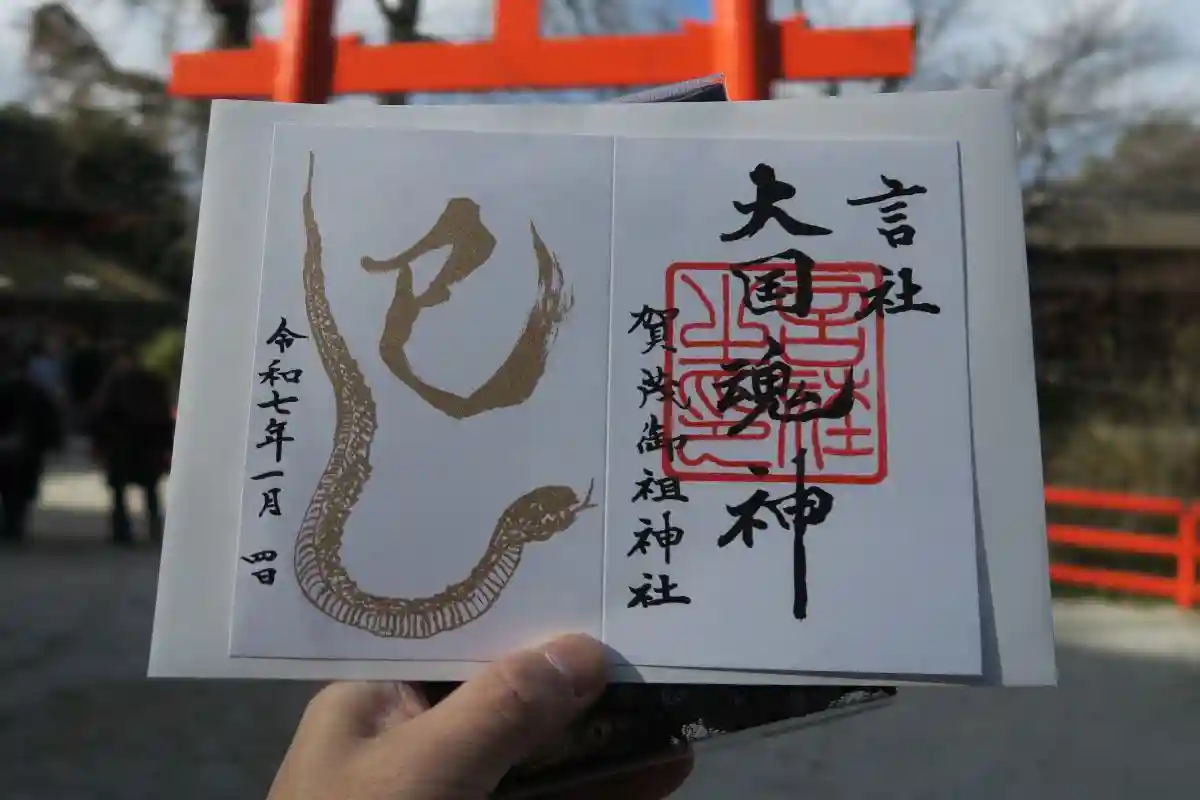 言社
大国魂神
賀茂御祖神社
巳
令和七年一月 四日